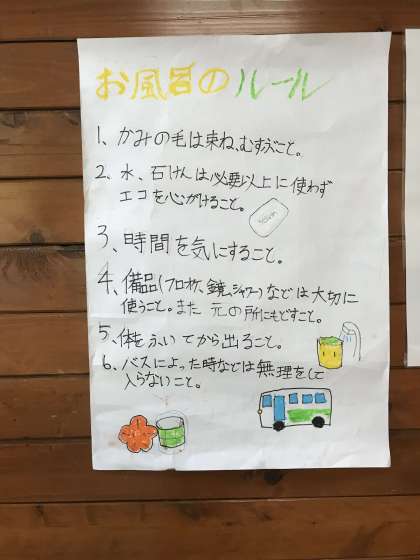 お風呂のルール
1、かみの毛は束ね、むすぶこと。
2、水、石けんは必要以上に使わず
エコを心がけること。
3、時間を気にすること。
4、備品(フロオケ、鏡、シャワー)などは大切に
使うこと。また 元の所にもどすこと。
5、体をふいてから出ること。
6、バスによった時などは無理をして
入らないこと。